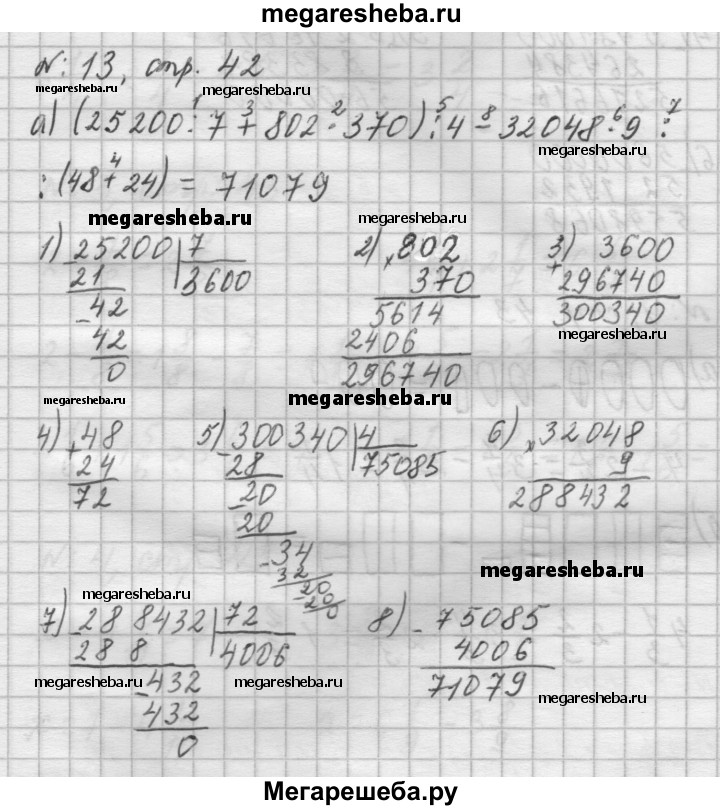 megaresheba.ru
№: 13, стр. 42
megaresheba.ru megaresheba.ru
1 3 2 5 8 6 7
а) (25200 : 7 + 802 · 370) : 4 − 32048 · 9 :
megaresheba.ru
4
: (48 + 24) = 71079
megaresheba.ru megaresheba.ru
1) 25200 | 7 2) × 802 3) 3600
− 21 3600 370 + 296740
− 42 5614 300340
42 2406 megaresheba.ru
0 296740
megaresheba.ru megaresheba.ru
4) + 48 5) − 300340 | 4 6) × 32048
24 28 75085 9
72 − 20 288432
20
− 34
32
− 20
20
0
megaresheba.ru
megaresheba.ru
7) − 288432 | 72 8) − 75085
288 4006 4006
megaresheba.ru − 432 megaresheba.ru 71079 megaresheba.ru
432
0
Мегарешеба.ру